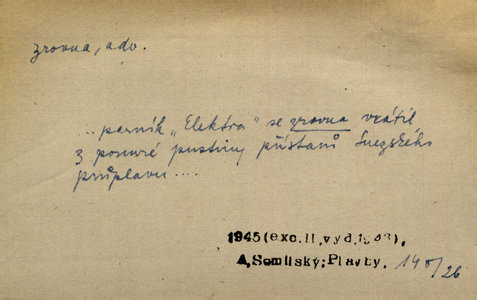 zrovna, adv.
... parník „Elektra" se zrovna vrátil
z ponuré pustiny přístavů Suezského
průplavu ....
1945 (exc. II. vyd. 1946),
A. Somlišký; Plavby.